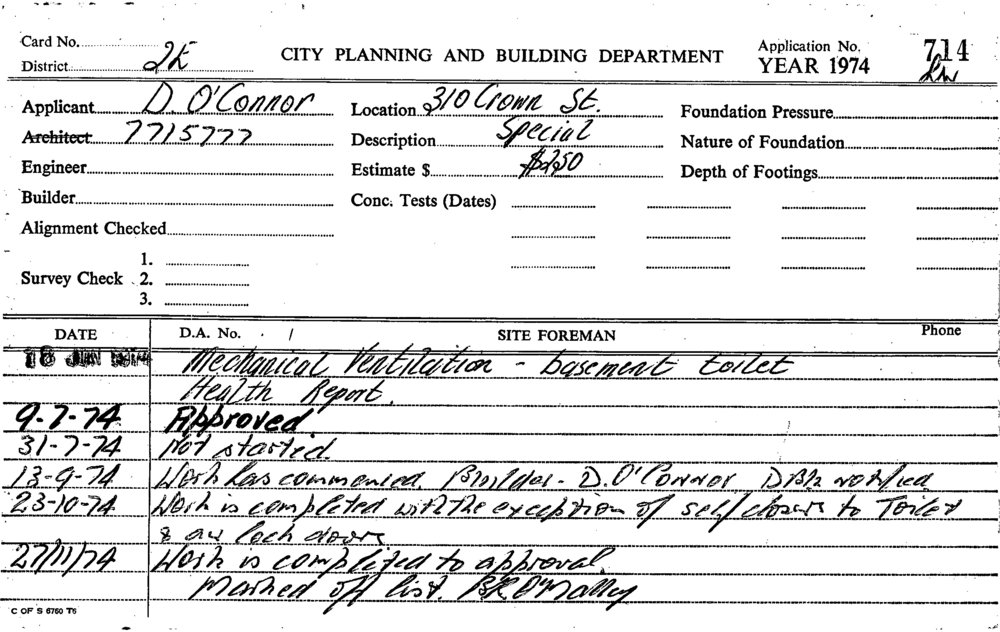 Card No.
District 2E
CITY PLANNING AND BUILDING DEPARTMENT
Application No. 714
YEAR 1974
Applicant D. O'Connor
Location 310 Crown St.
Foundation Pressure
Architect 7715777
Description Special
Nature of Foundation
Engineer
Estimate $ $250
Depth of Footings
Builder
Conc. Tests (Dates)
Alignment Checked
Survey Check 1.
2.
3.
DATE D.A. No. / SITE FOREMAN Phone
18 JUN 1974 Mechanical Ventilation - basement toilet
Health Report.
9-7-74 Approved.
31-7-74 Not started.
13-9-74 Work has commenced. Builder - D. O'Connor notified
23-10-74 Work is completed with the exception of self closers to Toilet
& air lock doors
27/11/74 Work is completed to approval.
Marked off list. B.R. O'Malley
C OF S 6760 T6